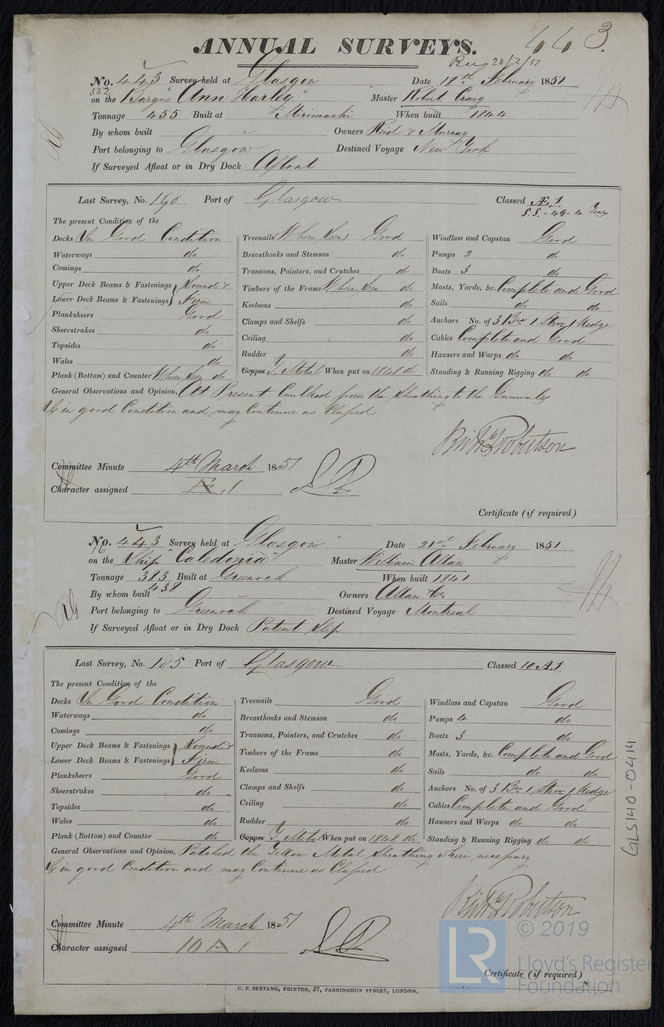 443.
ANNUAL SURVEYS.
Rec 28/2/51
No. 443 Survey held at Glasgow Date 18th February 1851
552
on the Barque "Ann Harley" Master Robert Craig
Tonnage 455 Built at Mirimachi When built 1844
By whom built Owners Reid & Murray
Port belonging to Glasgow Destined Voyage New York
If Surveyed Afloat or in Dry Dock Afloat
Last Survey, No. 190 Port of Glasgow Classed Æ 1
S.S. - 49 - 4
The present Condition of the
Decks In Good Condition Treenails Where Seen Good Windlass and Capstan Good
Waterways do Breasthooks and Stemson do Pumps 2 do
Comings do Transoms, Pointers, and Crutches do Boats 3 do
Upper Deck Beams & Fastenings Sound & Timbers of the Frame Where Seen do Masts, Yards, &c. Complete and Good
Lower Deck Beams & Fastenings Firm Keelsons do Sails do do
Planksheers Good Clamps and Shelfs do Anchors No. of 3 Br 1 Strm 1 Kedge
Sheerstrakes do Ceiling do Cables Complete and Good
Topsides do Rudder do Hausers and Warps do do
Wales do Copper Y Metal When put on 1848 do Standing & Running Rigging do do
Plank (Bottom) and Counter Where Seen do
General Observations and Opinion, At Present Caulked from the Sheathing to the Gunwales
Is in good Condition and may Continue as Classed
Robertson
Committee Minute 4th March 1851
Character assigned Æ 1
Certificate (if required)
No. 443 Survey held at Glasgow Date 21st February 1851
on the Ship "Caledonia" Master William Allan
Tonnage 383 Built at Greenock When built 1841
438
By whom built Owners Allan & Co
Port belonging to Greenock Destined Voyage Montreal
If Surveyed Afloat or in Dry Dock Patent Slip
Last Survey, No. 185 Port of Glasgow Classed 10 A 1
The present Condition of the
Decks In Good Condition Treenails Good Windlass and Capstan Good
Waterways do Breasthooks and Stemson do Pumps 4 do
Comings do Transoms, Pointers, and Crutches do Boats 3 do
Upper Deck Beams & Fastenings Sound & Timbers of the Frame do Masts, Yards, &c. Complete and Good
Lower Deck Beams & Fastenings Firm Keelsons do Sails do do
Planksheers Good Clamps and Shelfs do Anchors No. of 3 Br 1 Strm 1 Kedge
Sheerstrakes do Ceiling do Cables Complete and Good
Topsides do Rudder do Hausers and Warps do do
Wales do Copper Y Metal When put on 1848 do Standing & Running Rigging do do
Plank (Bottom) and Counter do
General Observations and Opinion, Patched the Yellow Metal Sheathing where necessary
Is in good Condition and may Continue as Classed
Robertson
Committee Minute 4th March 1851
Character assigned 10 A 1
Certificate (if required)
C. F. SEYFANG, PRINTER, 57, FARRINGDON STREET, LONDON.
GLS140-0414
LR © 2019
Lloyd's Register
Foundation